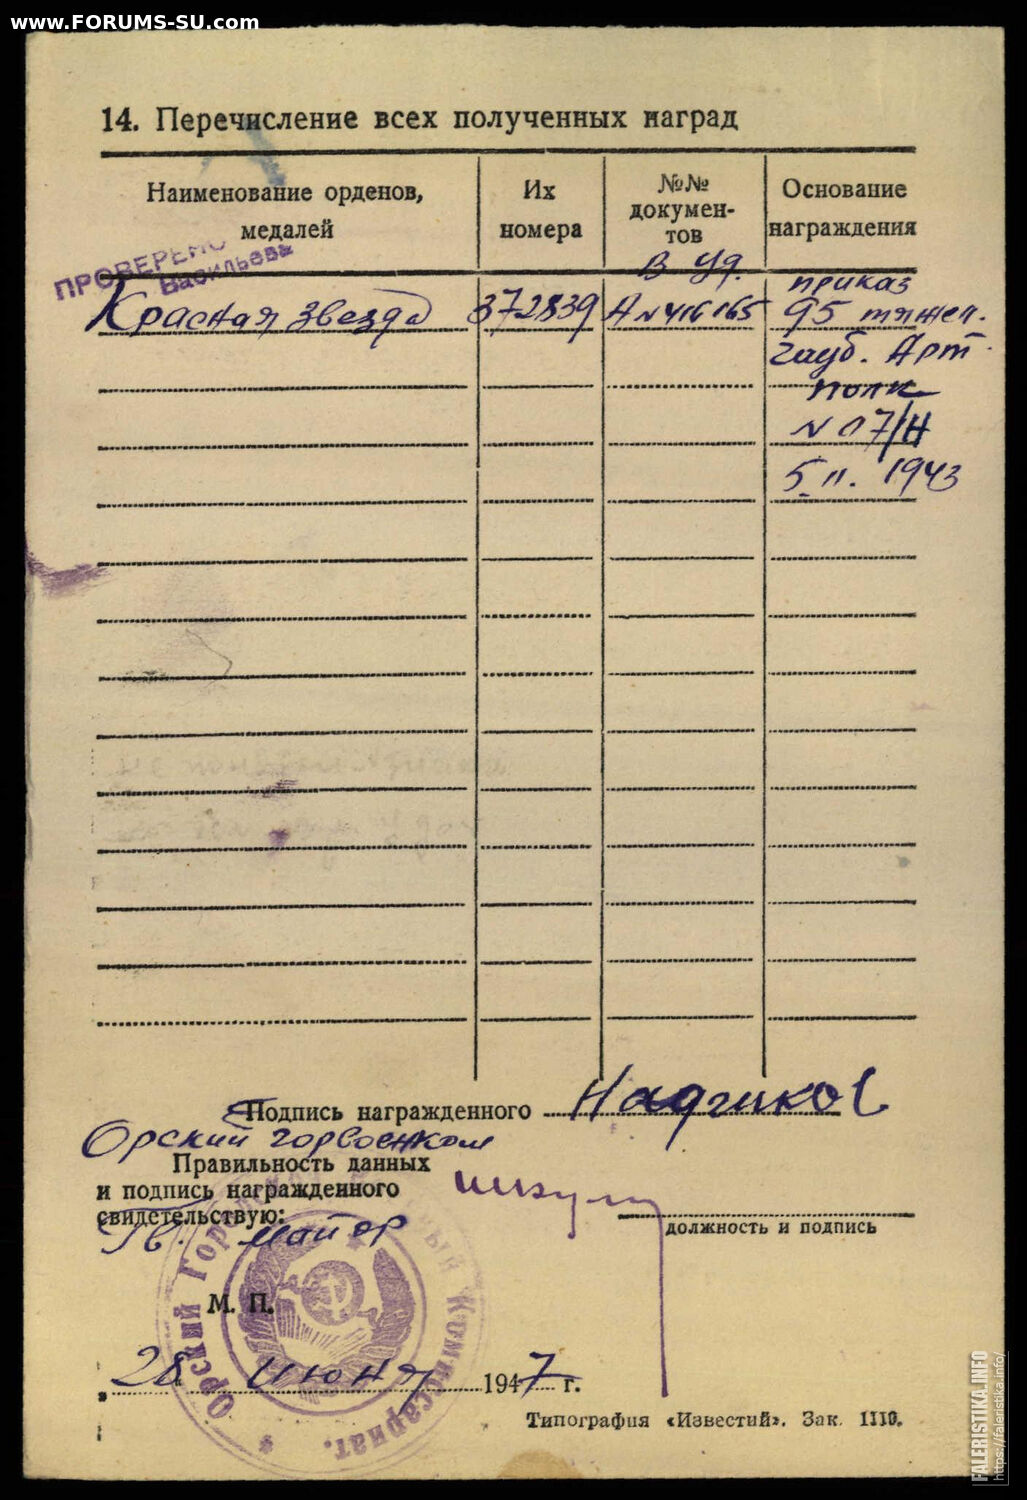 www.FORUMS-SU.com
14. Перечисление всех полученных наград
Наименование орденов, медалей
Их номера
№№ документов
Основание награждения
ПРОВЕРЕНО
Васильева
в уд.
Красная звезда 372839 А№416165 приказ
95 тяжел.
гауб. Арт.
полк
№ 07/Н
5.II. 1943
Подпись награжденного
Орский горвоенком
Правильность данных
и подпись награжденного
свидетельствую:
Гв. майор
должность и подпись
М. П.
Орский Городской Комиссариат.
„28 июня 1947 г.
Типография «Известий». Зак. 1110.
FALERISTIKA.INFO
https://faleristika.info/